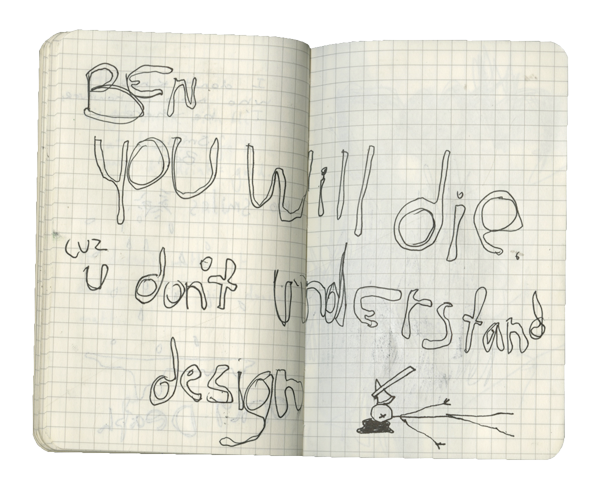 BEN
YOU will die.
cuz
u don't understand
design